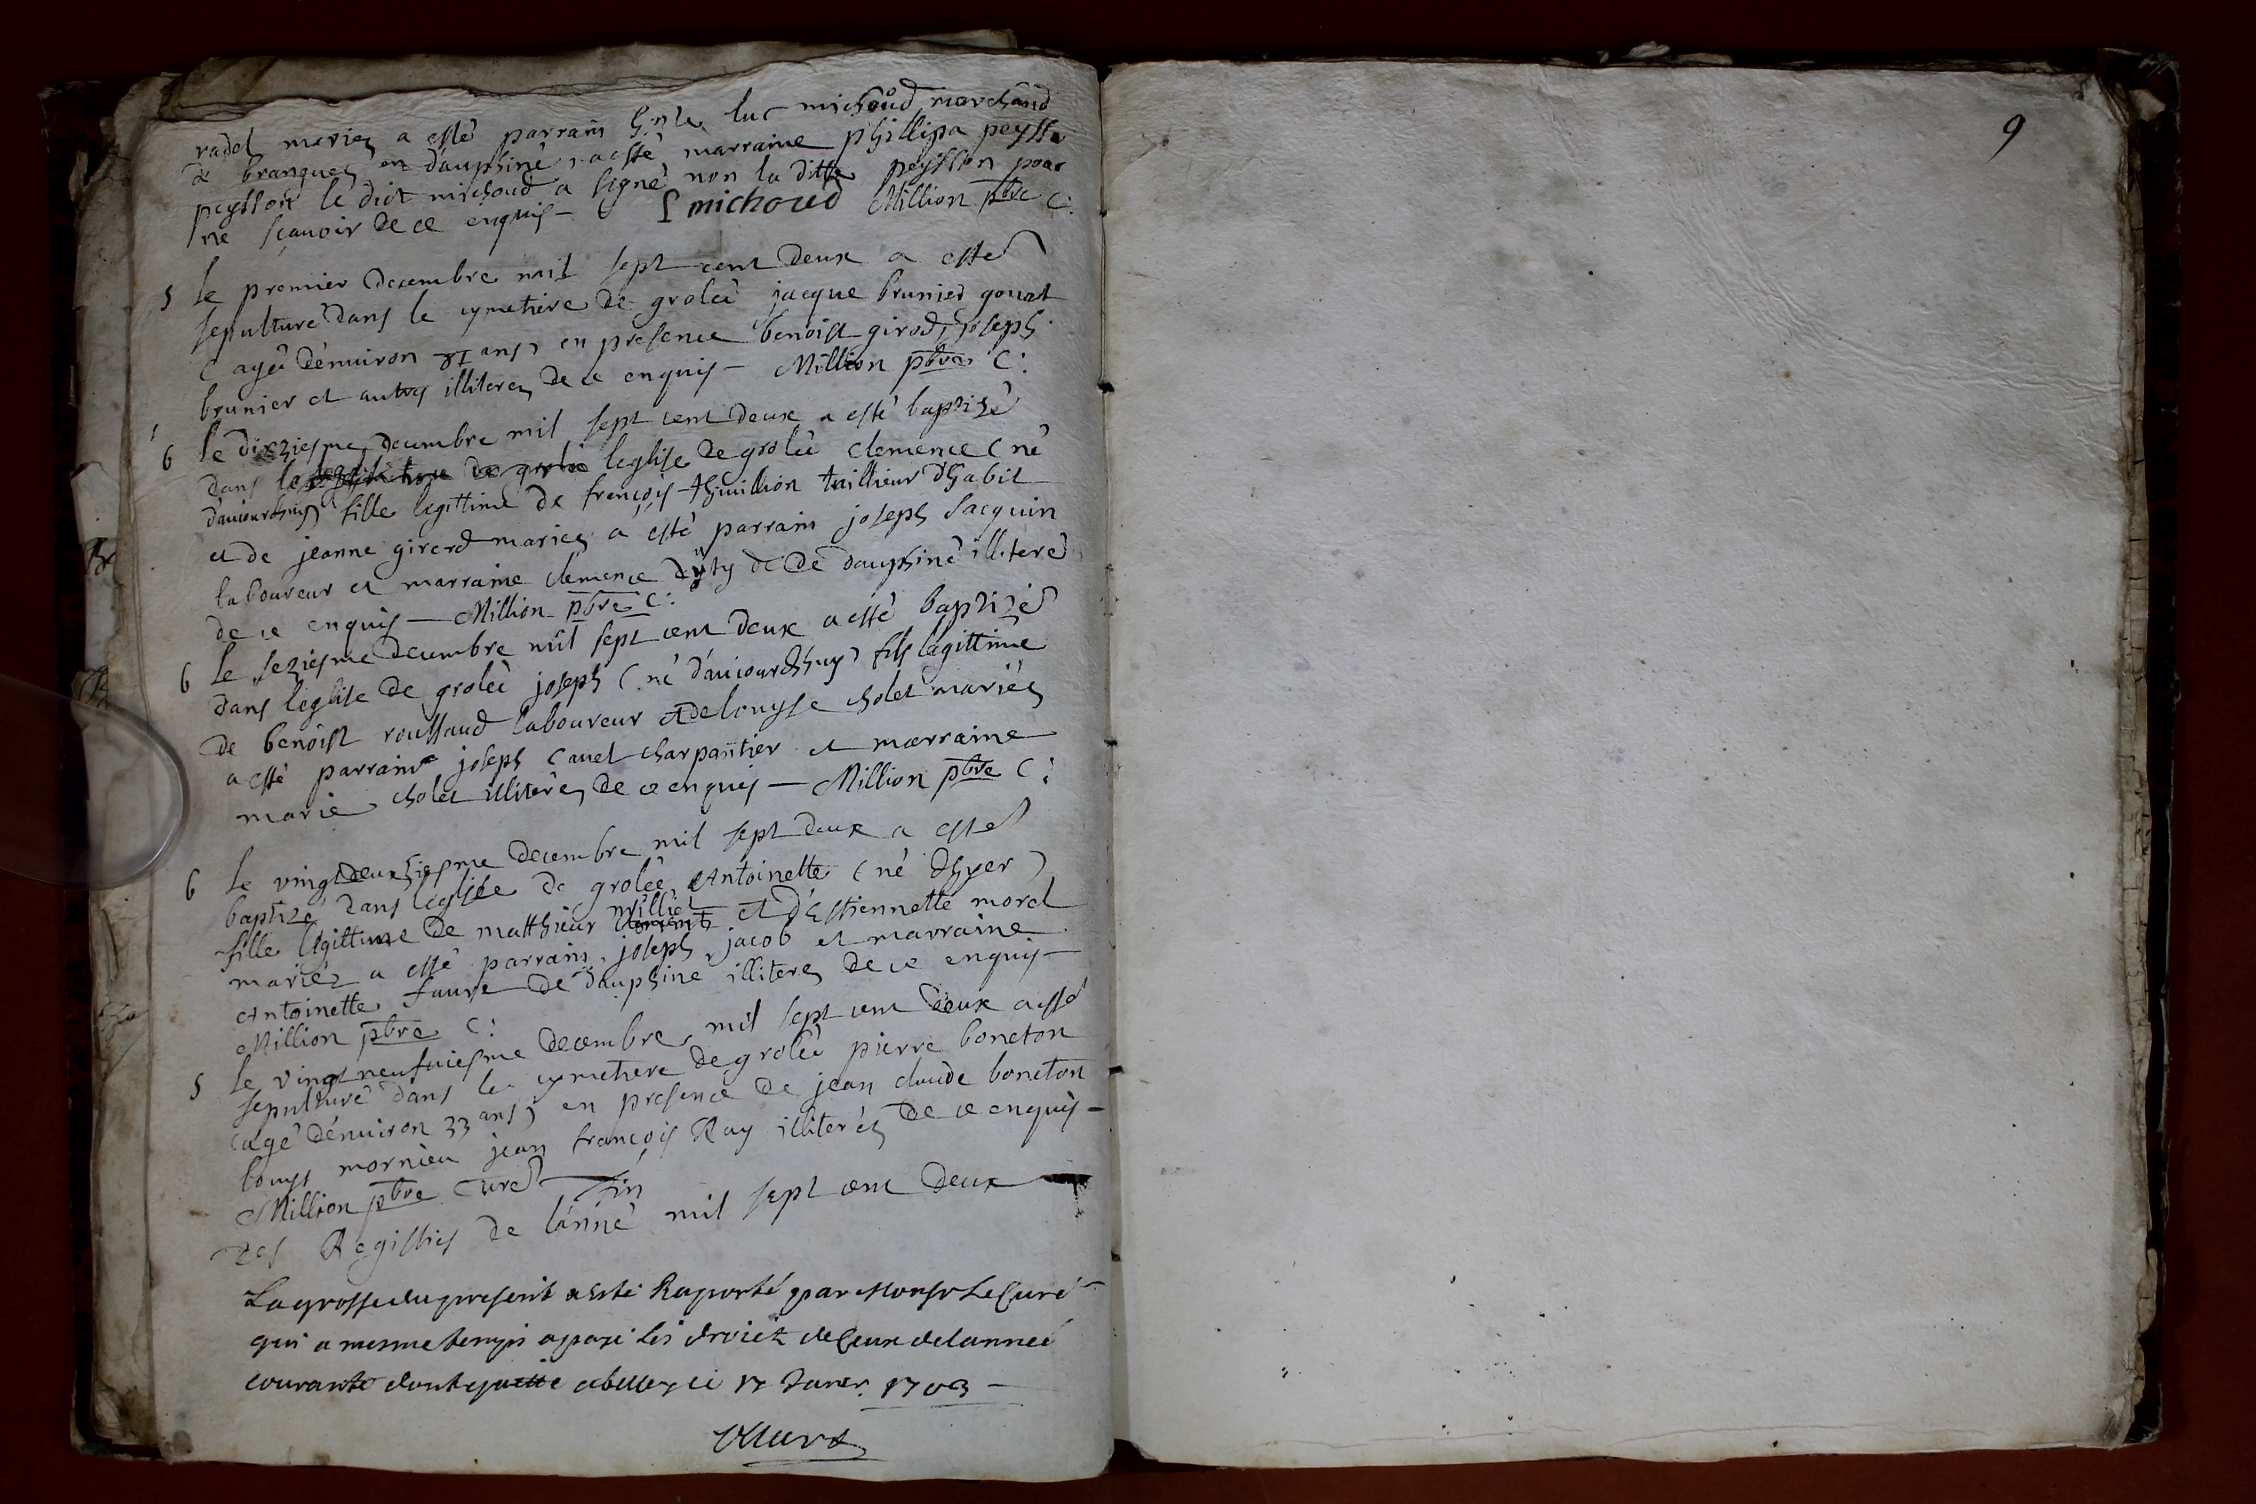 radel mariez a esté parrain luc michoud marchand
de branques en dauphiné, a esté marraine phillipa peysso
peysson le dict michoud a signé non la ditte peysson pour
ne sçavoir de ce enquis - L michoud Million pbre C:
S le premier decembre mil sept cent deux a esté
sepulturé dans le cymetiere de groleé jacque brunier gouat
( agé d'enuiron ans) en presence benoist girod, joseph
brunier et autres illiterez de ce enquis - Million pbre C:
6 le dixziesme decembre mil sept cent deux a esté baptizé
dans le de groleé leglise de groleé clemence ( né
d'auiourdhuy) fille legittime de françois thuillion tallieur dhabit
et de jeanne girerd mariez a esté parrain joseph Jacquin
laboureur et marraine clemence de de dauphiné illiteré
de ce enquis - Million pbre C:
6 le seziesme decembre mil sept cent deux a esté baptizé
dans leglise de groleé joseph ( né d'auiourdhuy) fils legittime
de benoist roussaud laboureur et de louyse cholet mariéz
a esté parrain joseph cauet charpantier et marraine
marie cholet illiteréz de ce enquis - Million pbre C:
6 le vingtdeuxziesme decembre mil sept deux a esté
baptizé dans leglise de groleé Antoinette ( né dhyer )
fille legittime de matthieur milliet et d'Estiennette morel
mariéz a esté parrain joseph jacob et marraine
Antoinette faure de dauphine illiterez de ce enquis -
Million pbre C:
S le vingtneufuiesme decembre mil sept cent deux a esté
sepulturé dans le cymetiere de groleé pierre boneton
(agé d'enuiron 33 ans) en presence de jean claude boneton
louys mornieu jean françois Ray illiteréz de ce enquis -
Million pbre curé Fin
des Registres de l'anné mil sept cent deux
La grosse du present a esté Raporté par Monsr Le Curé
qui a mesme temps a payé les droictz de Ceux de lanneé
courante dont quitte a belley ce 17 Janer. 1703 -